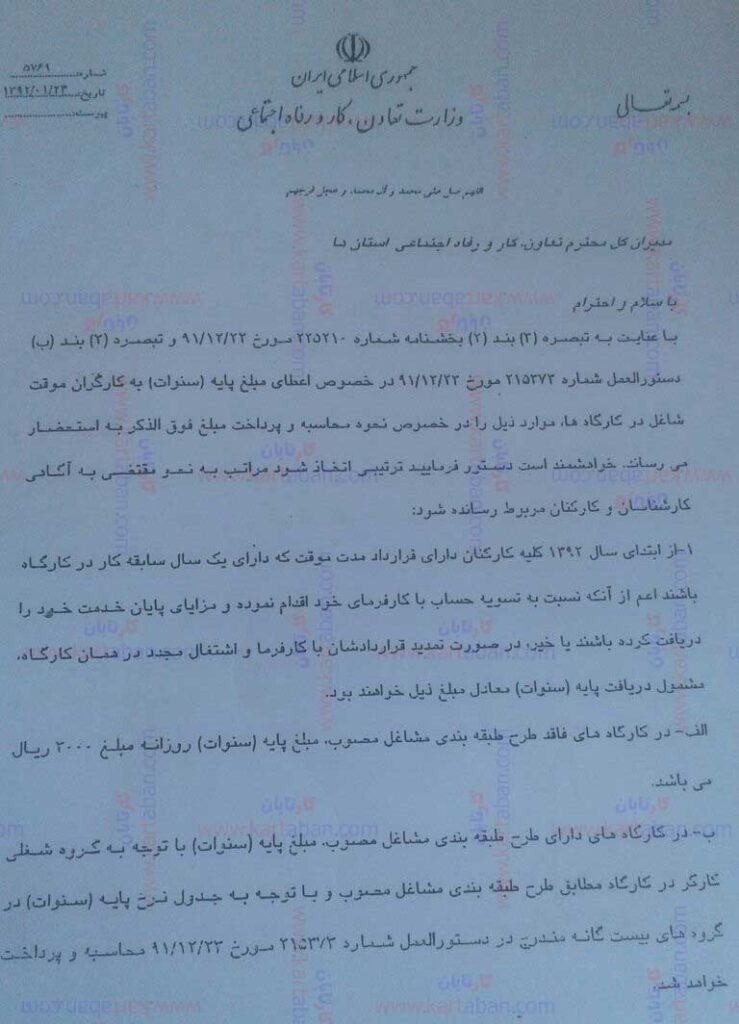 بسمه تعالی
جمهوری اسلامی ایران
وزارت تعاون، کار و رفاه اجتماعی
شماره: ۵۷۶۹
تاریخ: ۱۳۹۲/۰۱/۲۳
پیوست:
اللهم صل علی محمد و آل محمد و عجل فرجهم
مدیران کل محترم تعاون، کار و رفاه اجتماعی استان ها
با سلام و احترام
با عنایت به تبصره (۳) بند (۲) بخشنامه شماره ۲۲۵۲۱۰ مورخ ۹۱/۱۲/۲۲ و تبصره (۲) بند (ب)
دستورالعمل شماره ۲۱۵۳۷۳ مورخ ۹۱/۱۲/۲۳ در خصوص اعطای مبلغ پایه (سنوات) به کارگران موقت
شاغل در کارگاه ها، موارد ذیل را در خصوص نحوه محاسبه و پرداخت مبلغ فوق الذکر به استحضار
می رساند. خواهشمند است دستور فرمایید ترتیبی اتخاذ شود مراتب به نحو مقتضی به آگاهی
کارشناسان و کارکنان مربوط رسانده شود:
۱-از ابتدای سال ۱۳۹۲ کلیه کارکنان دارای قرارداد مدت موقت که دارای یک سال سابقه کار در کارگاه
باشند اعم از آنکه نسبت به تسویه حساب با کارفرمای خود اقدام نموده و مزایای پایان خدمت خود را
دریافت کرده باشند یا خیر، در صورت تمدید قراردادشان با کارفرما و اشتغال مجدد در همان کارگاه،
مشمول دریافت پایه (سنوات) معادل مبلغ ذیل خواهند بود.
الف- در کارگاه های فاقد طرح طبقه بندی مشاغل مصوب، مبلغ پایه (سنوات) روزانه مبلغ ۳۰۰۰ ریال
می باشد.
ب- در کارگاه های دارای طرح طبقه بندی مشاغل مصوب، مبلغ پایه (سنوات) با توجه به گروه شغلی
کارگر در کارگاه مطابق طرح طبقه بندی مشاغل مصوب و با توجه به جدول نرخ پایه (سنوات) در
گروه های بیست گانه مندرج در دستورالعمل شماره ۲۱۵۳۷۳ مورخ ۹۱/۱۲/۲۳ محاسبه و پرداخت
خواهد شد.
www.kartaban.com
کارتابان